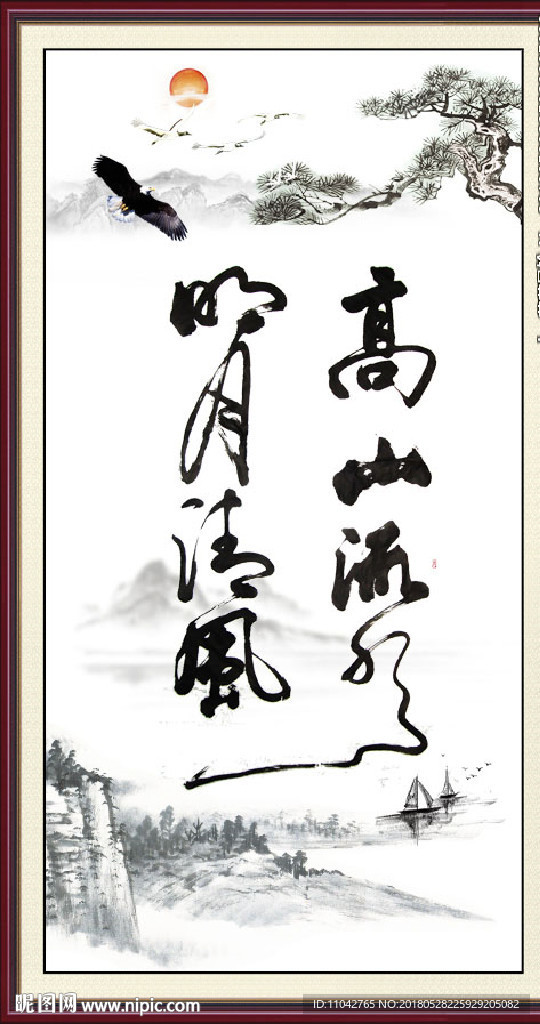 高山流水
明月清风
昵图网 www.nipic.com
ID:11042765 NO:20180528225929205082